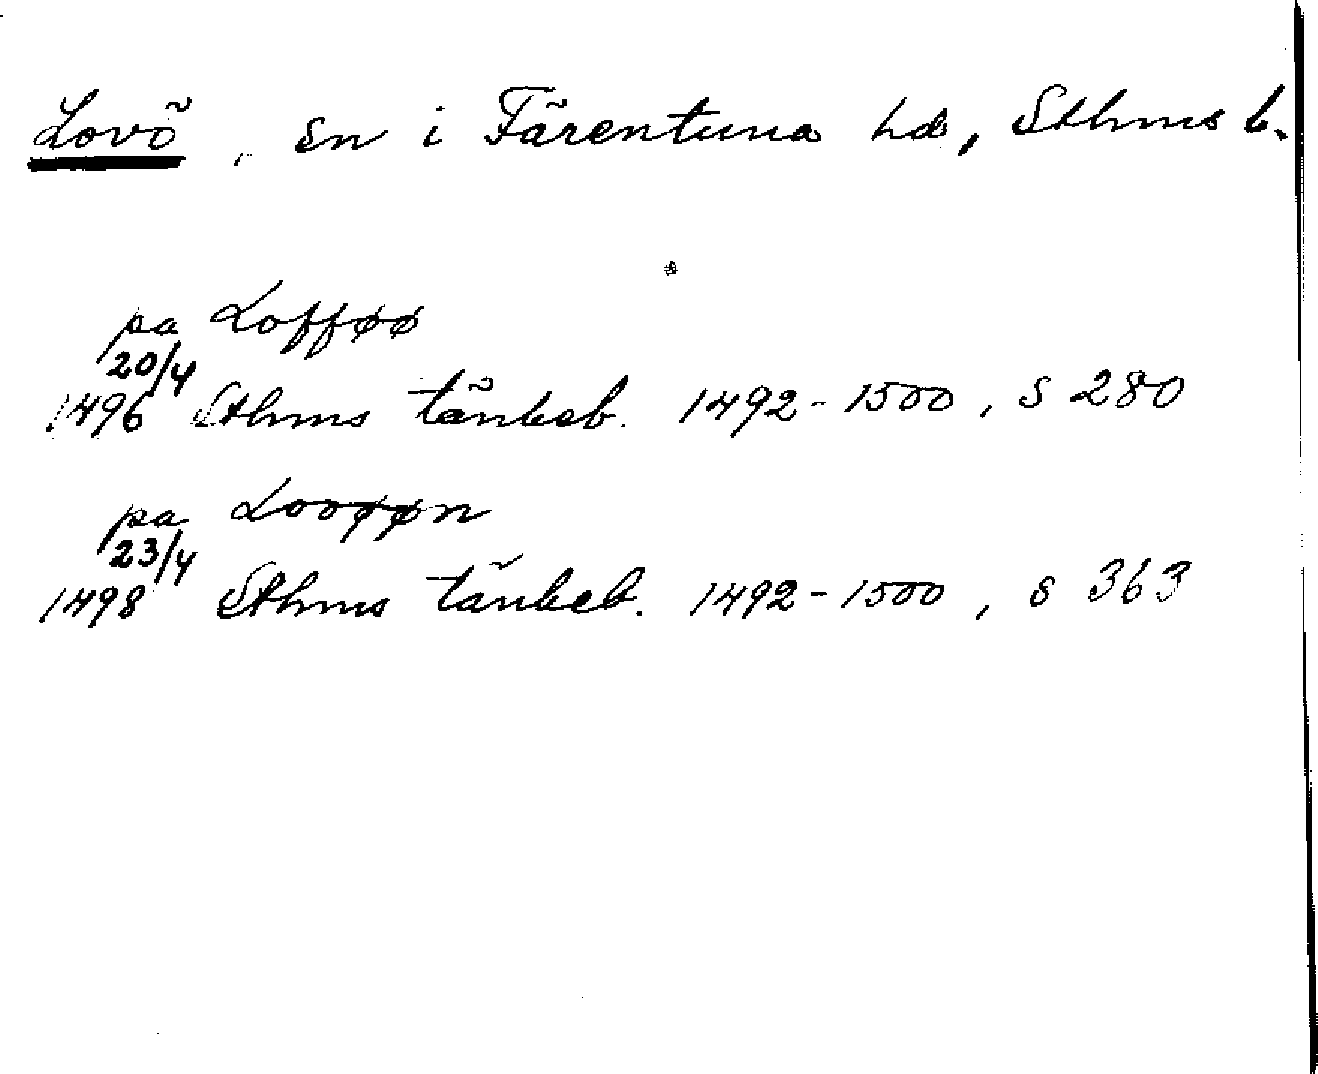 Lovö, sn i Färentuna hd, Sthms l.
pa Lofføø
20/4
1496 Sthms tänkeb. 1492-1500, s 280
pa Looøøn
23/4
1498 Sthms tänkeb. 1492-1500, s 363